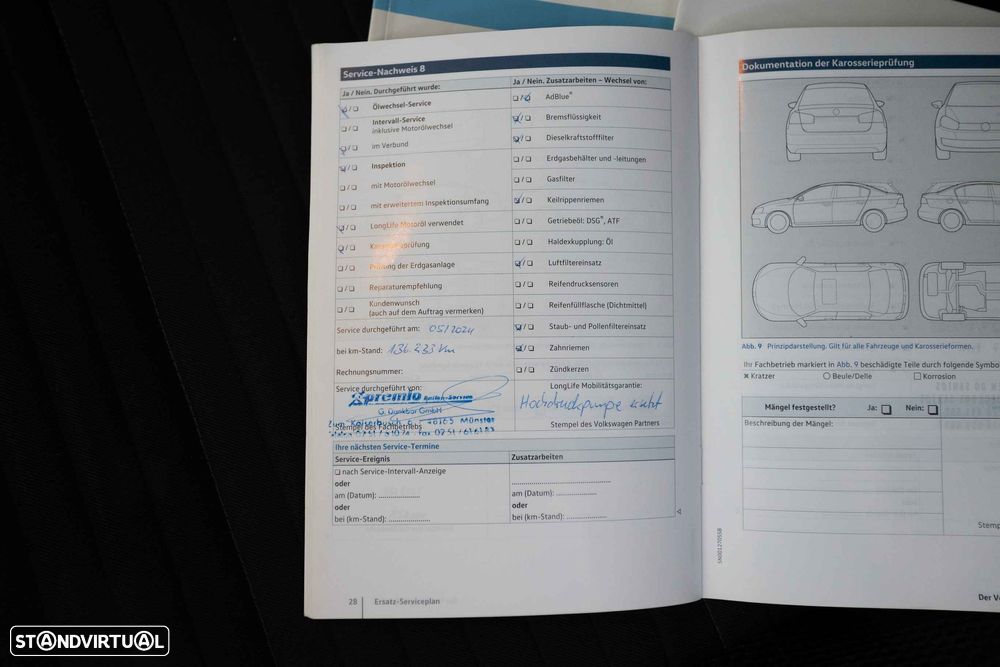 Service-Nachweis 8
Ja / Nein. Durchgeführt wurde:
Ölwechsel-Service
Intervall-Service
inklusive Motorölwechsel
im Verbund
Inspektion
mit Motorölwechsel
mit erweitertem Inspektionsumfang
LongLife Motoröl verwendet
Prüfung der Erdgasanlage
Reparaturempfehlung
Kundenwunsch
(auch auf dem Auftrag vermerken)
Service durchgeführt am: 05/2024
bei km-Stand: 136.233 km
Rechnungsnummer:
Service durchgeführt von:
premio Reifen-Service
G. Dankbar GmbH
48165 Münster
Stempel des Fachbetriebs
Ja / Nein. Zusatzarbeiten – Wechsel von:
AdBlue®
Bremsflüssigkeit
Dieselkraftstofffilter
Erdgasbehälter und -leitungen
Gasfilter
Keilrippenriemen
Getriebeöl: DSG®, ATF
Haldexkupplung: Öl
Luftfiltereinsatz
Reifendrucksensoren
Reifenfüllflasche (Dichtmittel)
Staub- und Pollenfiltereinsatz
Zahnriemen
Zündkerzen
LongLife Mobilitätsgarantie:
Hochdruckpumpe
Stempel des Volkswagen Partners
Ihre nächsten Service-Termine
Service-Ereignis
nach Service-Intervall-Anzeige
oder
am (Datum): ....................
oder
bei (km-Stand): ....................
Zusatzarbeiten
am (Datum): ....................
oder
bei (km-Stand): ....................
28 Ersatz-Serviceplan
Dokumentation der Karosserieprüfung
Abb. 9 Prinzipdarstellung. Gilt für alle Fahrzeuge und Karosserieformen.
Ihr Fachbetrieb markiert in Abb. 9 beschädigte Teile durch folgende Symbo
Kratzer Beule/Delle Korrosion
Mängel festgestellt? Ja: Nein:
Beschreibung der Mängel:
Stemp
Der V
STANDVIRTUAL